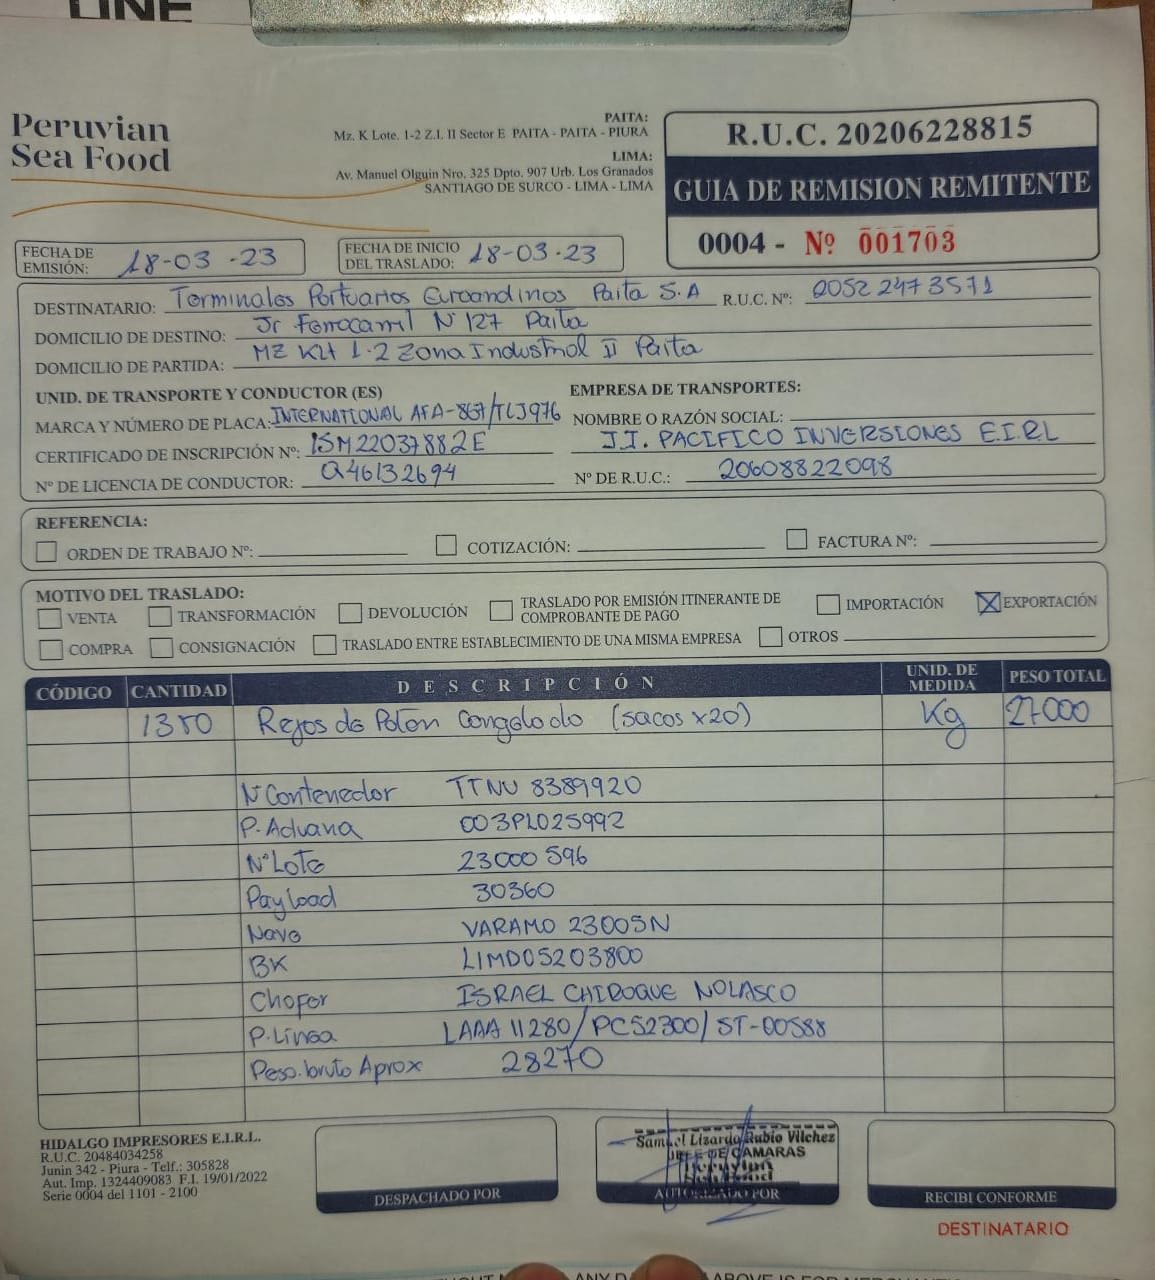 LINE
Peruvian
Sea Food
PAITA:
Mz. K Lote. 1-2 Z.I. II Sector E PAITA - PAITA - PIURA
LIMA:
Av. Manuel Olguin Nro. 325 Dpto. 907 Urb. Los Granados
SANTIAGO DE SURCO - LIMA - LIMA
R.U.C. 20206228815
GUIA DE REMISION REMITENTE
0004 - Nº 001703
FECHA DE EMISIÓN: 18-03-23
FECHA DE INICIO DEL TRASLADO: 18-03-23
DESTINATARIO: Terminales Portuarios Euroandinos Paita S.A R.U.C. Nº: 20522473571
DOMICILIO DE DESTINO: Jr Ferrocarril Nº 127 Paita
DOMICILIO DE PARTIDA: MZ K Lt 1-2 Zona Industrial II Paita
UNID. DE TRANSPORTE Y CONDUCTOR (ES) EMPRESA DE TRANSPORTES:
MARCA Y NÚMERO DE PLACA: INTERNATIONAL AFA-867/TLJ976 NOMBRE O RAZÓN SOCIAL:
CERTIFICADO DE INSCRIPCIÓN Nº: 15M22037882E J.J. PACIFICO INVERSIONES E.I.R.L
Nº DE LICENCIA DE CONDUCTOR: Q46132694 Nº DE R.U.C.: 20608822098
REFERENCIA:
ORDEN DE TRABAJO Nº: COTIZACIÓN: FACTURA Nº:
MOTIVO DEL TRASLADO:
VENTA TRANSFORMACIÓN DEVOLUCIÓN TRASLADO POR EMISIÓN ITINERANTE DE COMPROBANTE DE PAGO IMPORTACIÓN EXPORTACIÓN
COMPRA CONSIGNACIÓN TRASLADO ENTRE ESTABLECIMIENTO DE UNA MISMA EMPRESA OTROS
CÓDIGO CANTIDAD DESCRIPCIÓN UNID. DE MEDIDA PESO TOTAL
1350 Rejos de Poton Congelado (sacos x20) Kg 27000
Nº Contenedor TTNU 8389920
P. Aduana 003PL025992
Nº Lote 23000596
Payload 30360
Nave VARAMO 2300SN
BK LIMD05203800
Chofer ISRAEL CHIROQUE NOLASCO
P. Linea LAAA11280/PC52300/ST-00588
Peso bruto Aprox 28270
HIDALGO IMPRESORES E.I.R.L.
R.U.C. 20484034258
Junin 342 - Piura - Telf.: 305828
Aut. Imp. 1324409083 F.I. 19/01/2022
Serie 0004 del 1101 - 2100
DESPACHADO POR
Samuel Lizardo Rubio Vilchez
JEFE DE CAMARAS
Peruvian
Sea Food
AUTORIZADO POR
RECIBI CONFORME
DESTINATARIO